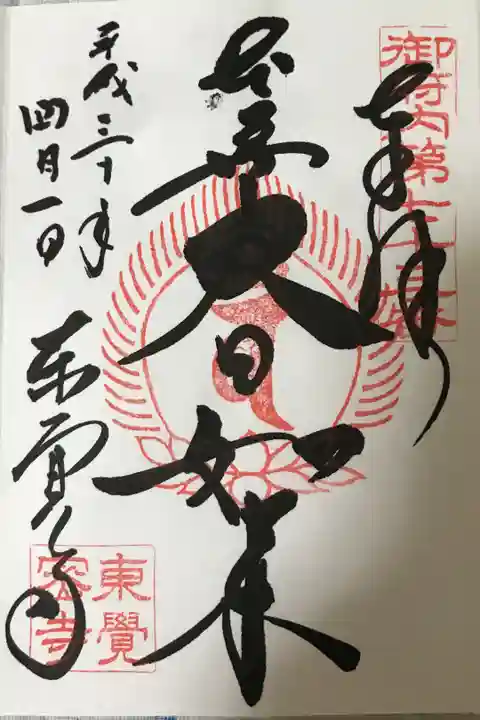 御府内第七十三番
奉拝
本尊大日如来
平成三十年
四月一日
東覚寺
東覺
密寺